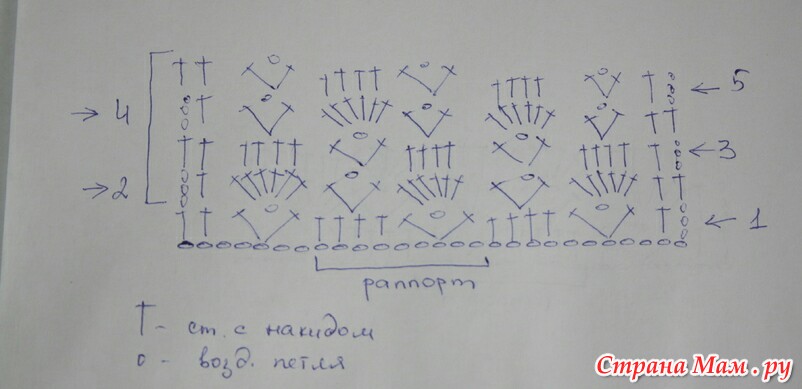 5
4
3
2
1
раппорт
Т - ст. с накидом
о - возд. петля
Страна Мам.ру